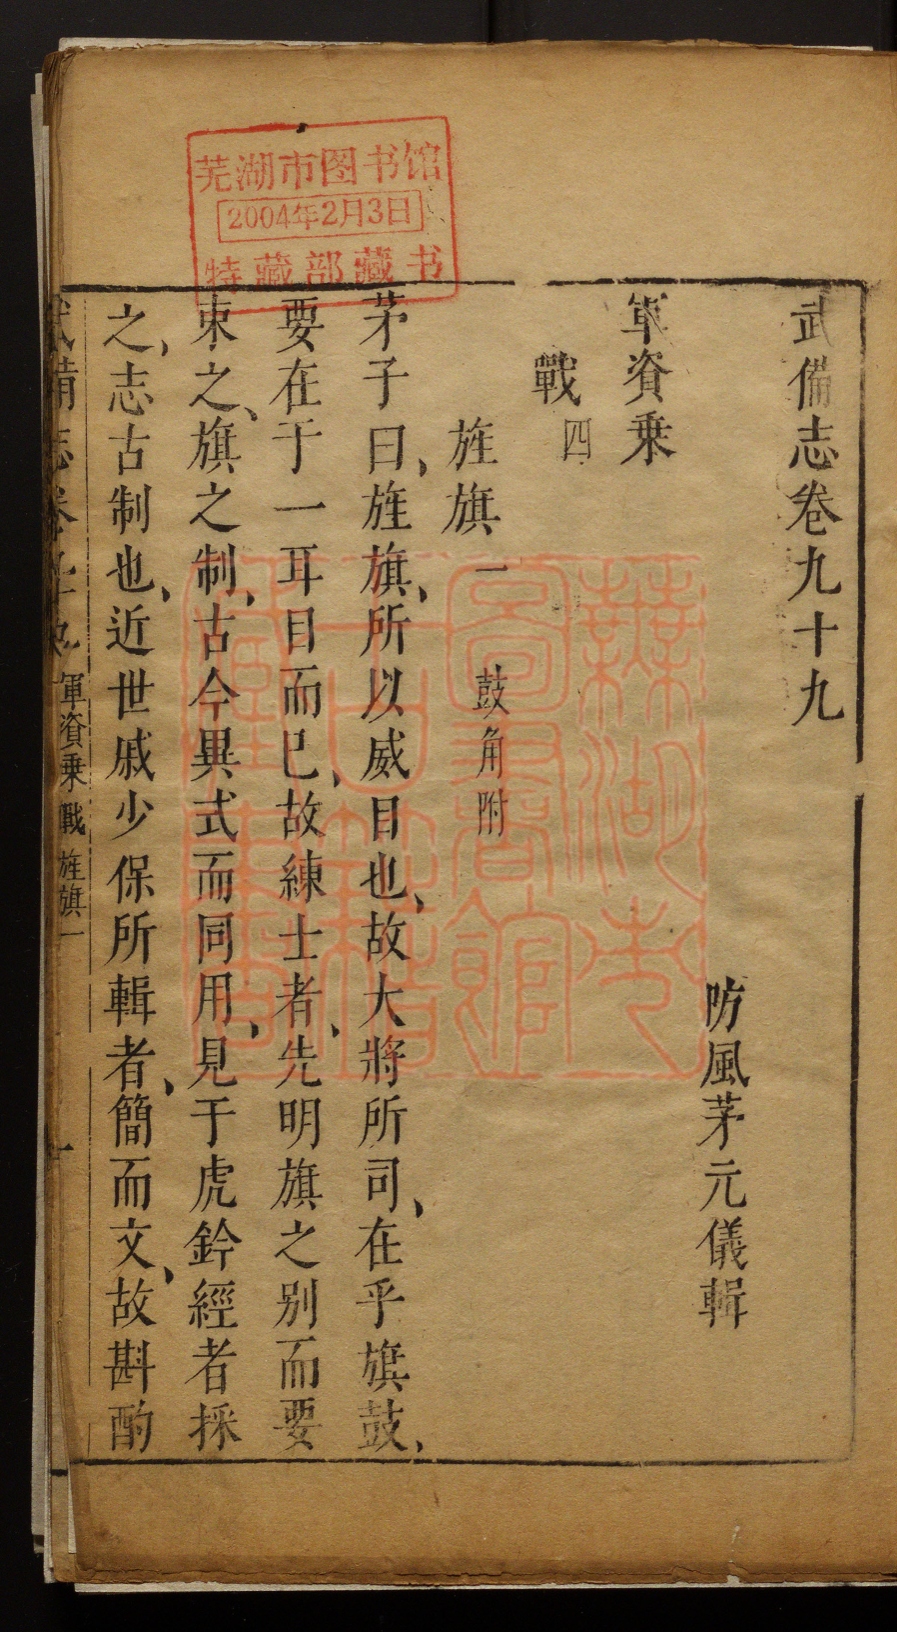 芜湖市图书馆
2004年2月3日
特藏部藏书
武備志卷九十九
防風茅元儀輯
軍資乗
戰四
旌旗一 鼓角附
茅子曰、旌旗、所以威目也、故大將所司、在乎旗鼓、
要在于一耳目而已、故練士者、先明旗之别而要
束之、旗之制、古今異式而同用、見于虎鈐經者採
之、志古制也、近世戚少保所輯者、簡而文、故斟酌
武備志卷 軍資乗 戰 旌旗一 一